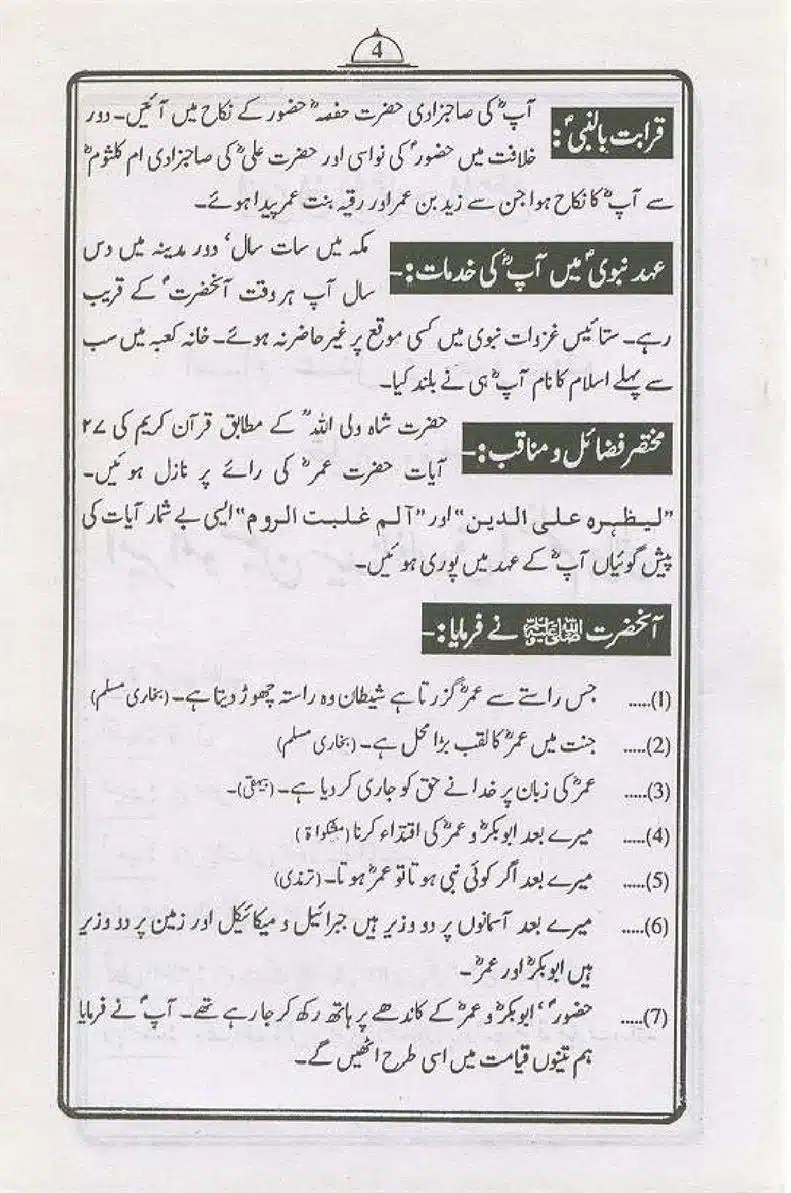 4
قرابت بالنبیؐ: آپؓ کی صاحبزادی حضرت حفصہؓ حضور کے نکاح میں آئیں۔ دور
خلافت میں حضورؐ کی نواسی اور حضرت علیؓ کی صاحبزادی ام کلثومؓ
سے آپؓ کا نکاح ہوا جن سے زید بن عمر اور رقیہ بنت عمر پیدا ہوئے۔
عہد نبویؐ میں آپؓ کی خدمات:- مکہ میں سات سال، دور مدینہ میں دس
سال آپ ہر وقت آنحضرتؐ کے قریب
رہے۔ ستائیس غزوات نبوی میں کسی موقع پر غیر حاضر نہ ہوئے۔ خانہ کعبہ میں سب
سے پہلے اسلام کا نام آپؓ ہی نے بلند کیا۔
مختصر فضائل و مناقب:- حضرت شاہ ولی اللہؒ کے مطابق قرآن کریم کی ۲۷
آیات حضرت عمرؓ کی رائے پر نازل ہوئیں۔
”لیظہرہ علی الدین“ اور ”آلم غلبت الروم“ ایسی بے شمار آیات کی
پیش گوئیاں آپؓ کے عہد میں پوری ہوئیں۔
آنحضرت ﷺ نے فرمایا:-
(1)..... جس راستے سے عمرؓ گزرتا ہے شیطان وہ راستہ چھوڑ دیتا ہے۔ (بخاری مسلم)
(2)..... جنت میں عمرؓ کا لقب بڑا محل ہے۔ (بخاری مسلم)
(3)..... عمرؓ کی زبان پر خدا نے حق کو جاری کر دیا ہے۔ (بیہقی)۔
(4)..... میرے بعد ابوبکرؓ و عمرؓ کی اقتداء کرنا (مشکواۃ)
(5)..... میرے بعد اگر کوئی نبی ہوتا تو عمرؓ ہوتا۔ (ترمذی)
(6)..... میرے بعد آسمانوں پر دو وزیر ہیں جبرائیل و میکائیل اور زمین پر دو وزیر
ہیں ابوبکرؓ اور عمرؓ۔
(7)..... حضورؐ، ابوبکرؓ و عمرؓ کے کاندھے پر ہاتھ رکھ کر جا رہے تھے۔ آپؐ نے فرمایا
ہم تینوں قیامت میں اسی طرح اٹھیں گے۔